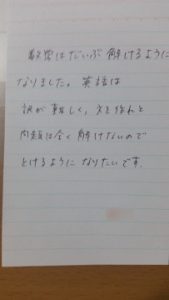 数学はだいぶ解けるように
なりました。英語は
訳が難しく、文を作んと
問題は全く解けないので
とけるようになりたいです。